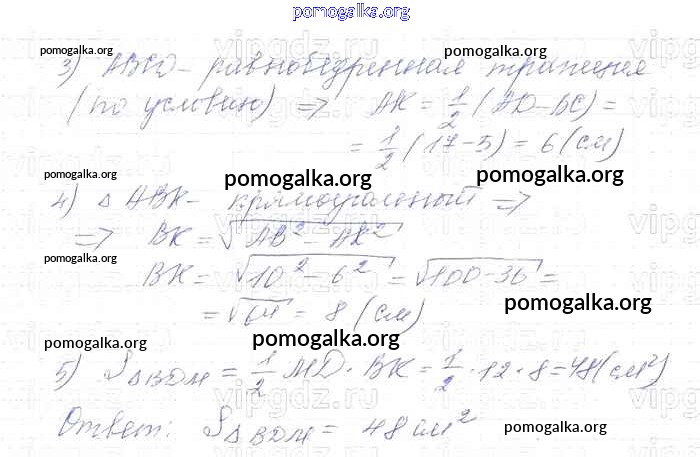 pomogalka.org
pomogalka.org pomogalka.org
3) ABCD - равнобедренная трапеция
(по условию) ⇒ AK = 1/2 (AD-BC) =
= 1/2 (17-5) = 6 (см)
pomogalka.org pomogalka.org pomogalka.org
4) △ ABK - прямоугольный ⇒
⇒ BK = √AB² - AK²
pomogalka.org
BK = √10² - 6² = √100-36 =
pomogalka.org
= √64 = 8 (см)
pomogalka.org pomogalka.org
5) S△BDM = 1/2 MD · BK = 1/2 · 12 · 8 = 48 (см²)
Ответ: S△BDM = 48 см²
pomogalka.org